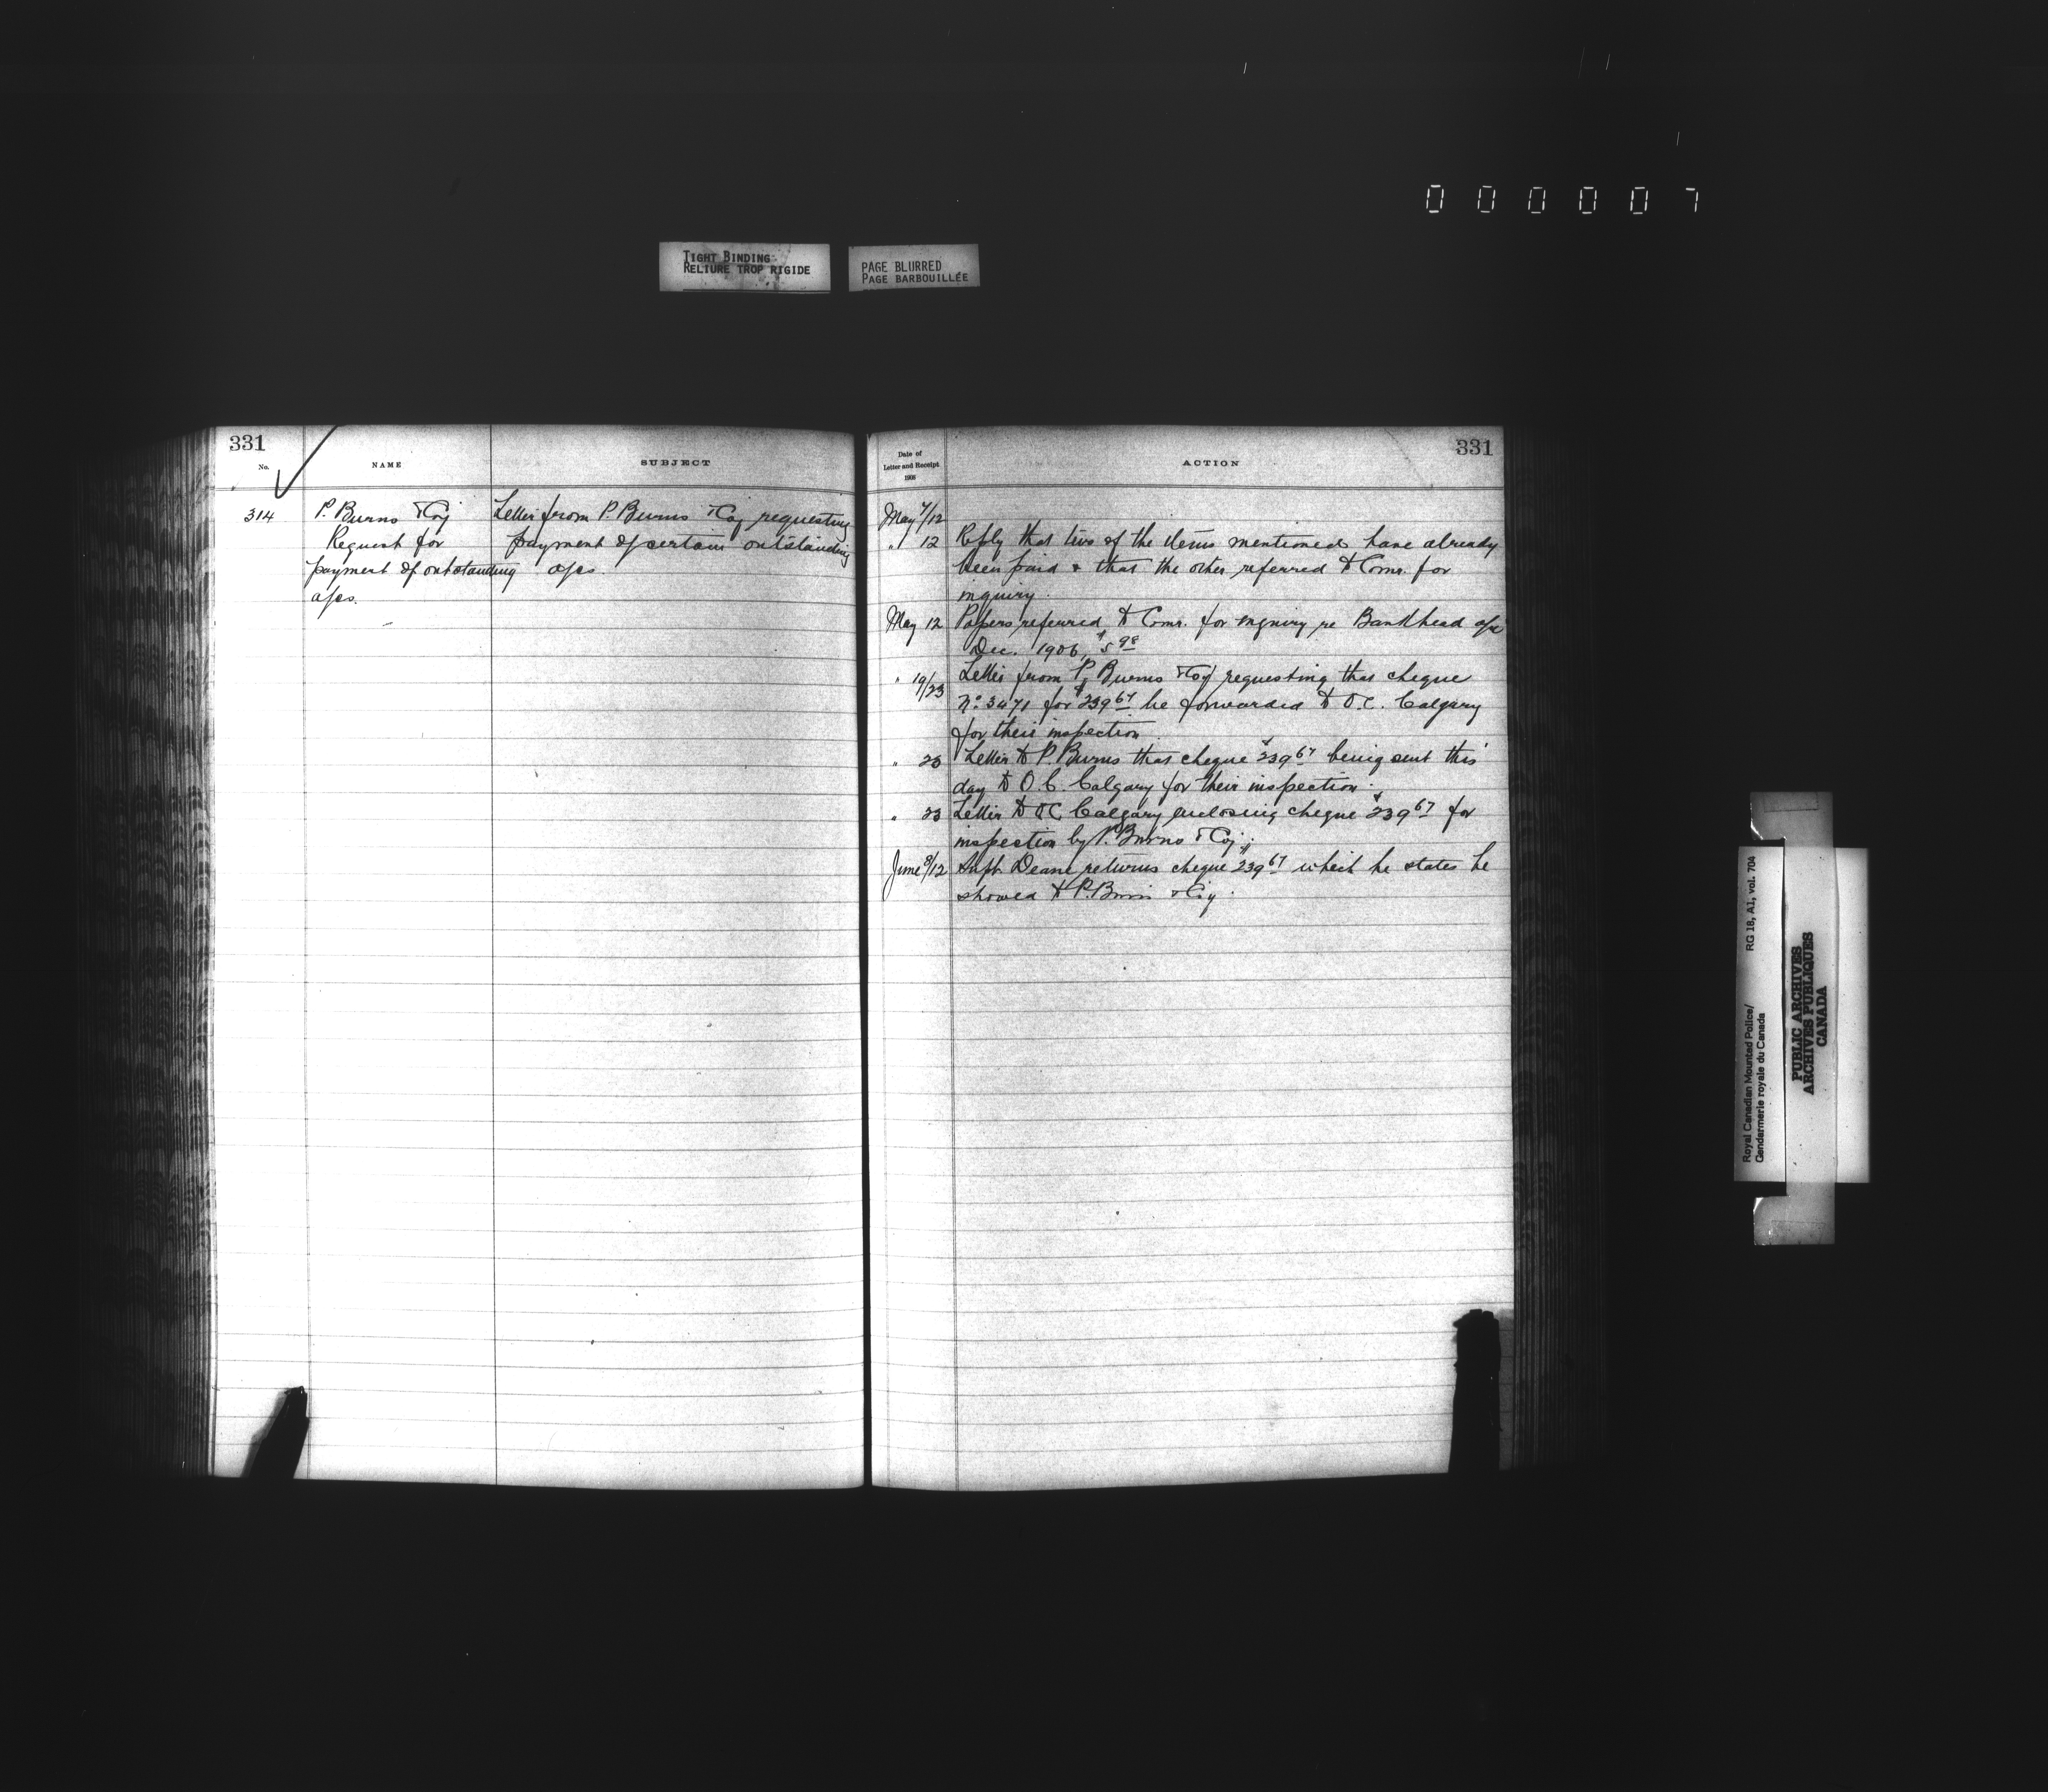 000007
TIGHT BINDING
RELIURE TROP RIGIDE
PAGE BLURRED
PAGE BARBOUILLÉE
331
No.
NAME
SUBJECT
314
P. Burns & Coy
Request for
payment of outstanding
a/cs.
Letter from P. Burns & Coy requesting
payment of certain outstanding
a/cs.
331
Date of
Letter and Receipt
1908
ACTION
May 7/12
" 12 Reply that two of the items mentioned have already
been paid & that the other referred to Comr. for
inquiry.
May 12 Papers referred to Comr. for inquiry re Bankhead a/c
Dec. 1906, $5 98
" 19/23 Letter from P. Burns & Coy requesting that cheque
No. 3471 for $239 67 be forwarded to O.C. Calgary
for their inspection.
" 23 Letter to P. Burns that cheque $239 67 being sent this
day to O.C. Calgary for their inspection.
" 23 Letter to O.C. Calgary enclosing cheque $239 67 for
inspection by P. Burns & Coy.
June 8/12 Supt. Deane returns cheque $239 67 which he states he
showed to P. Burns & Coy.
Royal Canadian Mounted Police/
Gendarmerie royale du Canada
RG 18, A1, vol. 704
PUBLIC ARCHIVES
ARCHIVES PUBLIQUES
CANADA